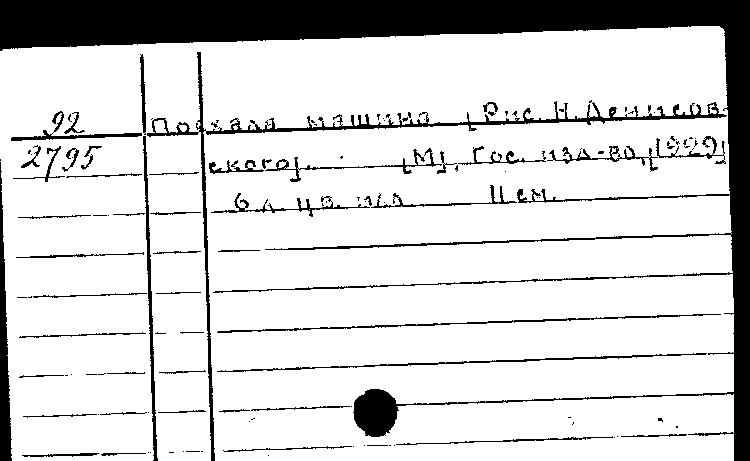 92
Поехала машина. [Рис. Н. Денисов-
2795
ского]. [М], Гос. изд-во, [1929]
6 л. цв. илл. 11 см.